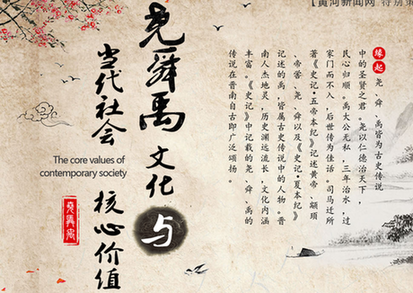 【黄河新闻网 特别策
尧舜禹文化与
当代社会核心价值
The core values of
contemporary society
尧舜禹
缘起
尧、舜、禹皆为古史传说
中的圣贤之君。尧以仁德治天下,
民心归顺。禹大公无私,三年治水,过
家门而不入,后世传为佳话。司马迁所
著《史记·五帝本纪》记述黄帝、颛顼
、帝喾、尧、舜以及《史记·夏本纪》
记述的禹,皆属古史传说中的人物。晋
南人杰地灵,历史渊远流长,文化内涵
丰富。《史记》中记载的尧、舜、禹的
传说在晋南自古即广泛颂扬。